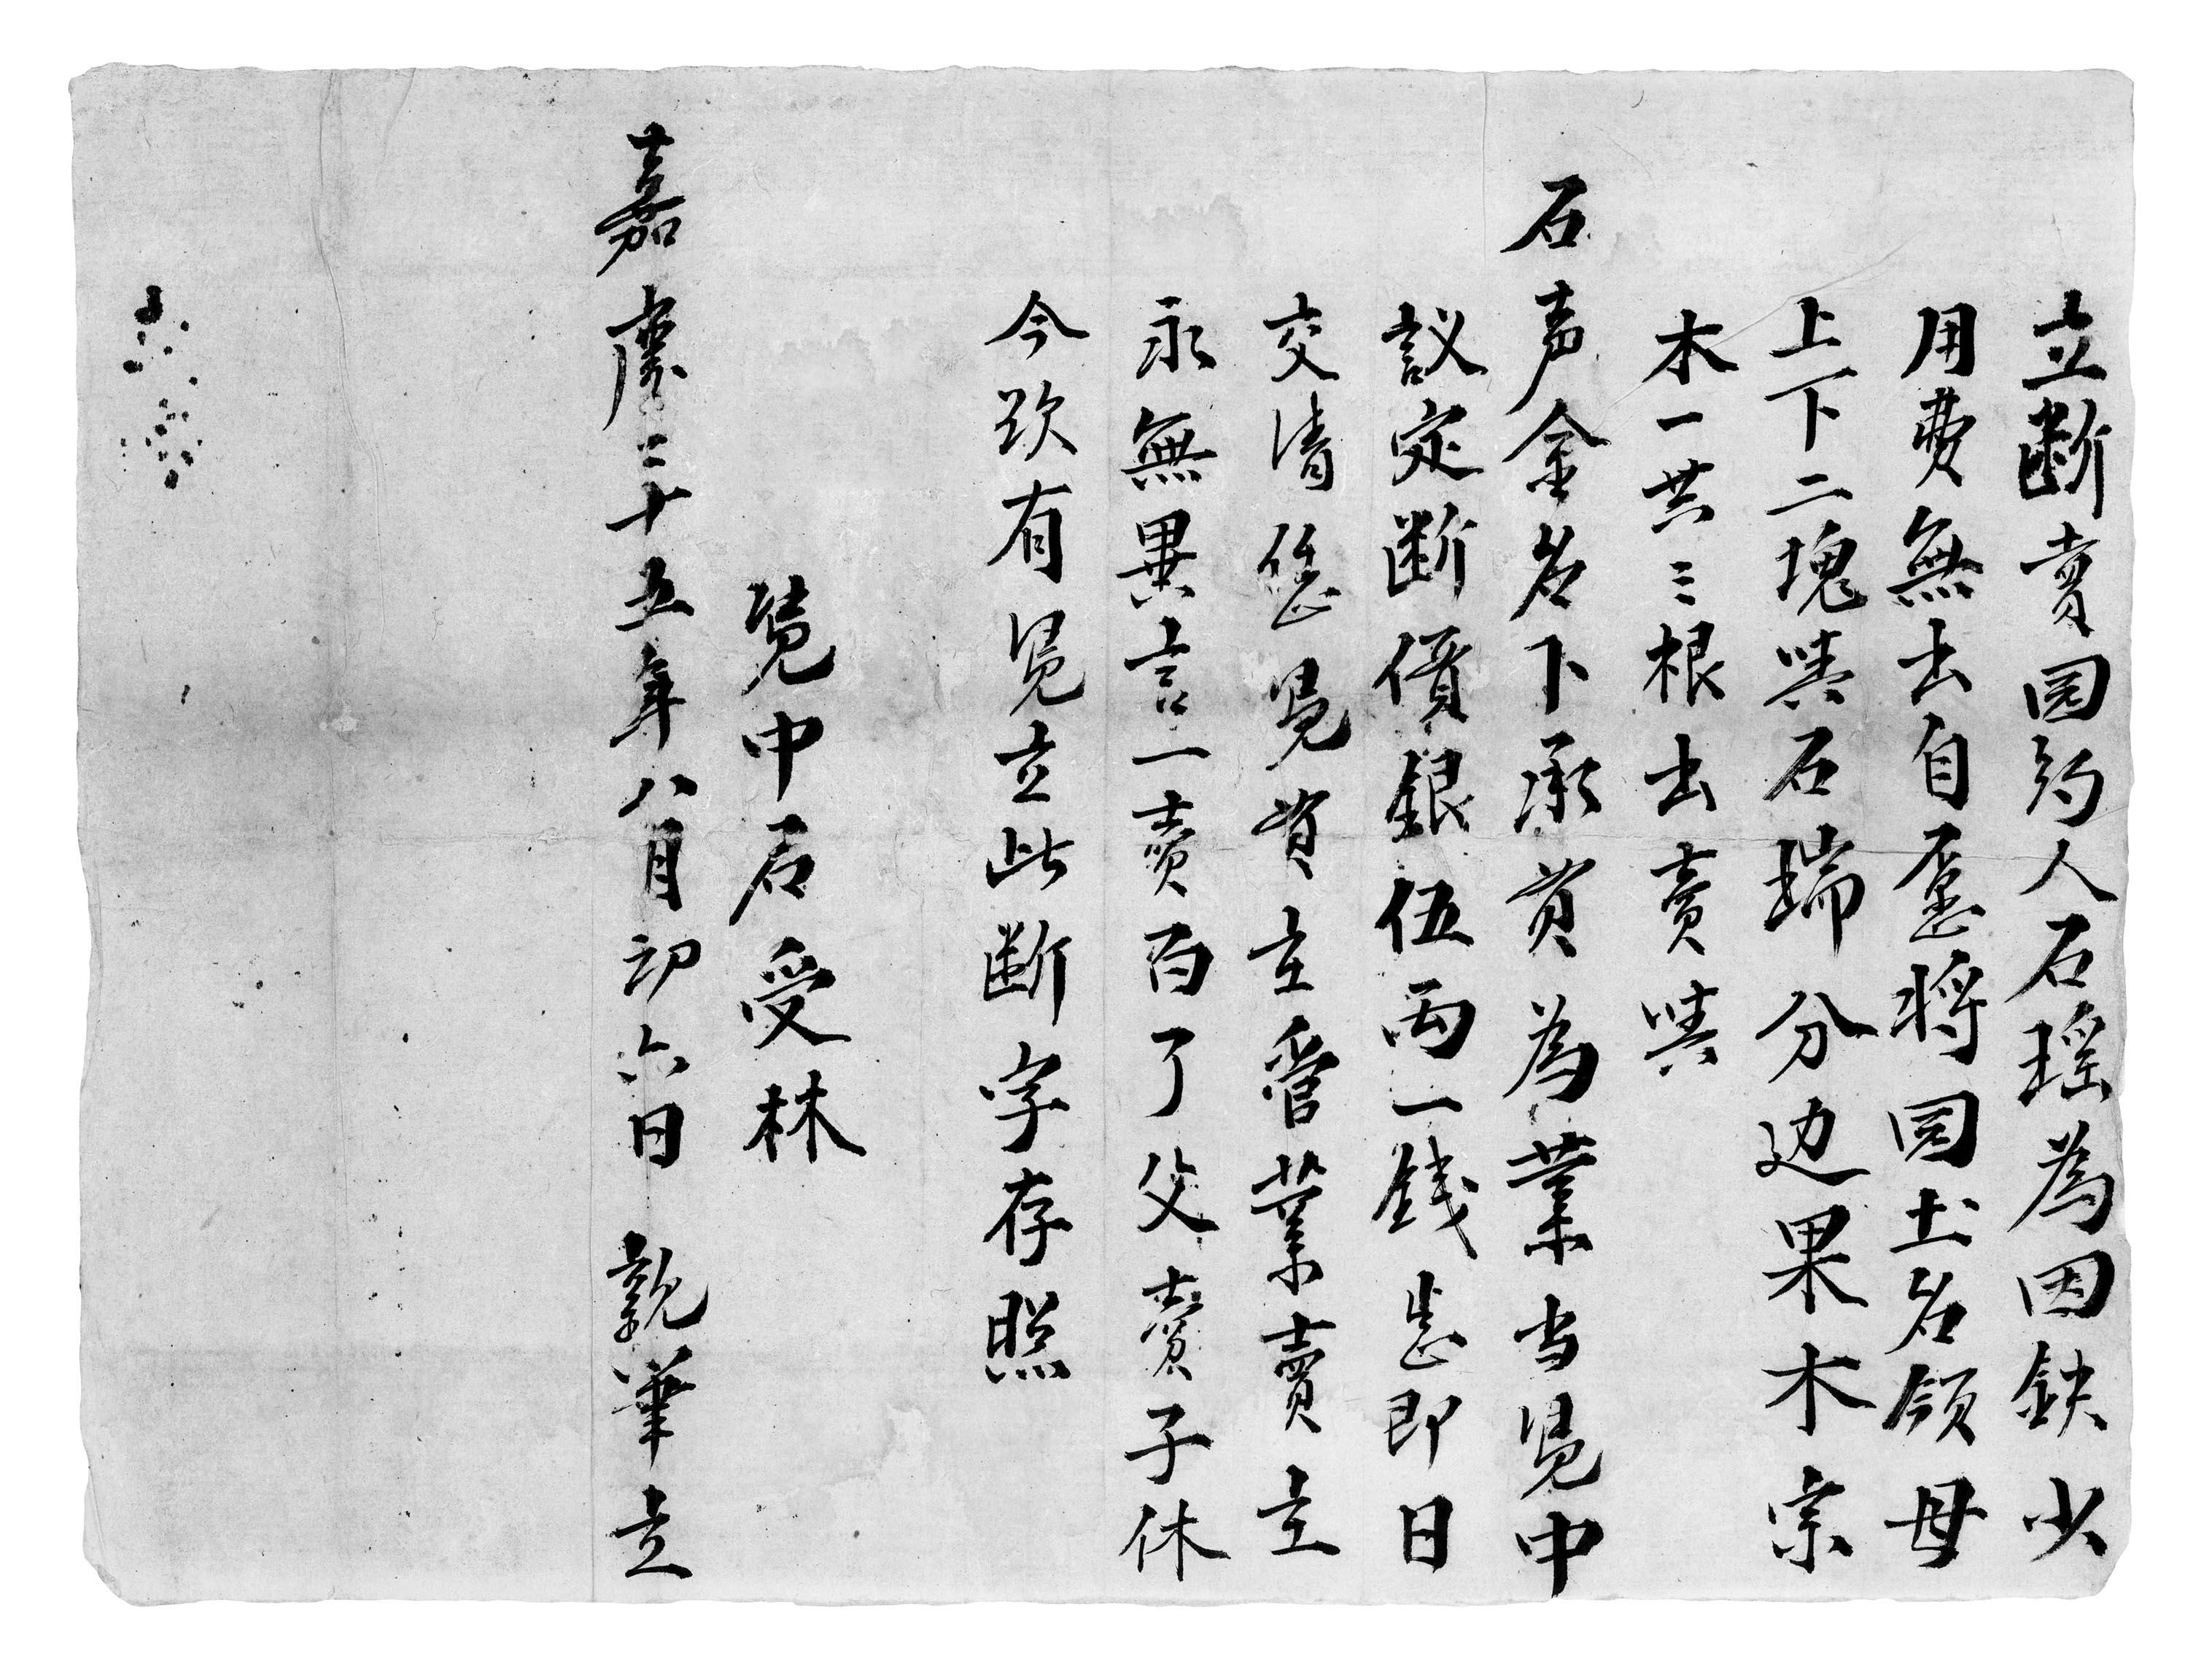 立断賣园約人石瑶為因缺少
用費無出自愿將园土名領母
上下二塊與石瑞分边果木宗
木一共三根出賣與
石声金名下承買為業当凭中
议定断價銀伍两一钱恁即日
交清恁凭買主管業賣主
永無異言一賣百了父賣子休
今欲有凭立此断字存照
凭中石受林
嘉慶二十五年八月初六日 親筆立